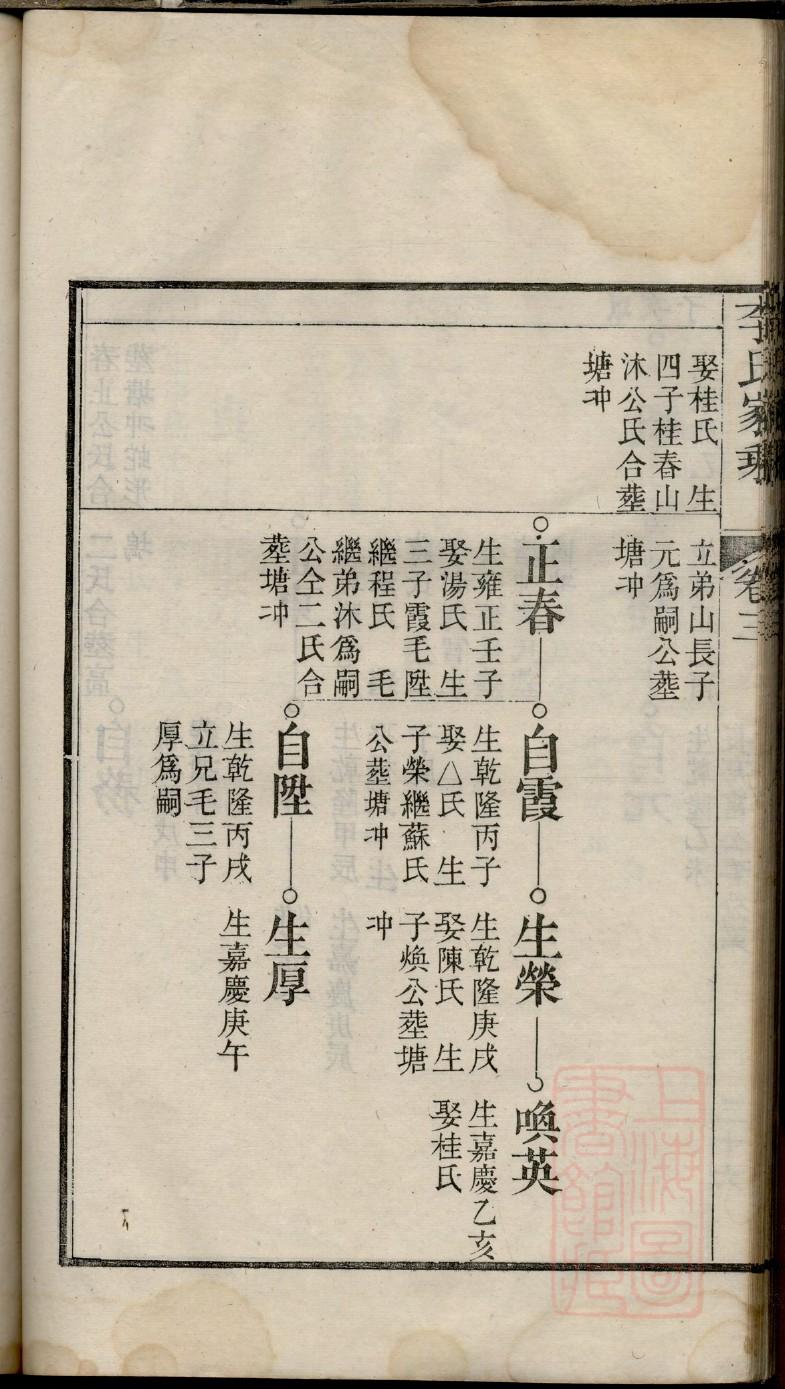 李氏家乘
卷三
娶桂氏 生
四子桂春山
沐公氏合塟
塘冲
立弟山長子
元爲嗣公塟
塘冲
正春
生雍正壬子
娶湯氏 生
三子霞毛陞
繼程氏 毛
繼弟沐爲嗣
公仝二氏合
塟塘冲
自霞
生乾隆丙子
娶△氏 生
子榮繼蘇氏
公塟塘冲
生榮
生乾隆庚戌
娶陳氏 生
子煥公塟塘
冲
喚英
生嘉慶乙亥
娶桂氏
自陞
生乾隆丙戌
立兄毛三子
厚爲嗣
生厚
生嘉慶庚午
上海圖
書館藏